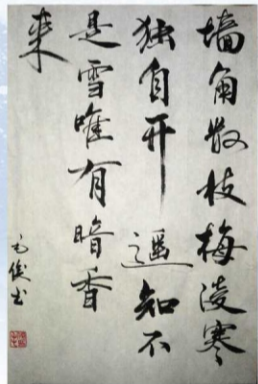 墙角数枝梅凌寒
独自开遥知不
是雪唯有暗香
来